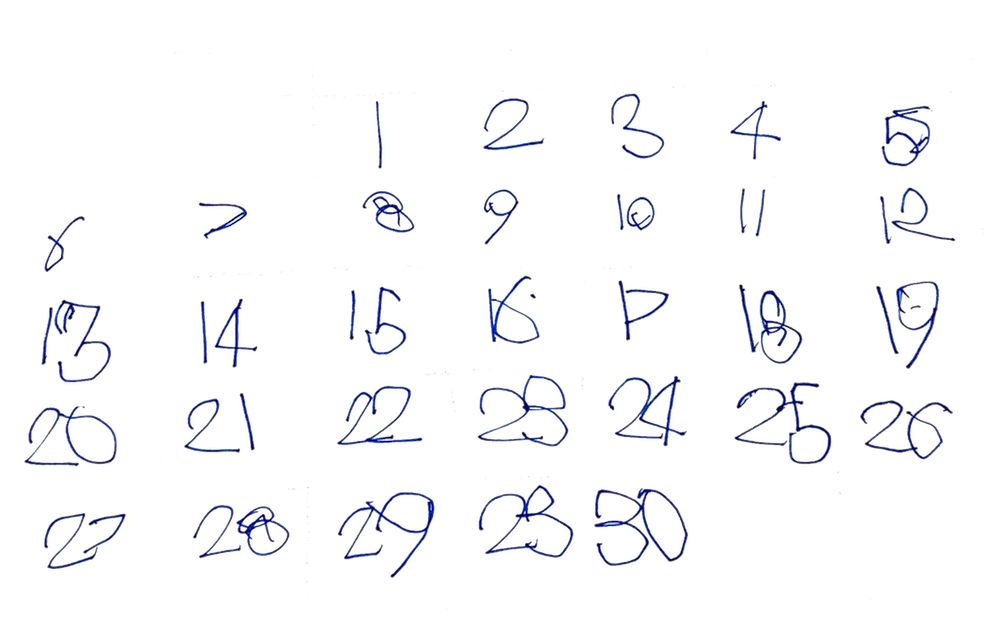 1 2 3 4 5
6 7 8 9 10 11 12
13 14 15 16 17 18 19
20 21 22 23 24 25 26
27 28 29 23 30